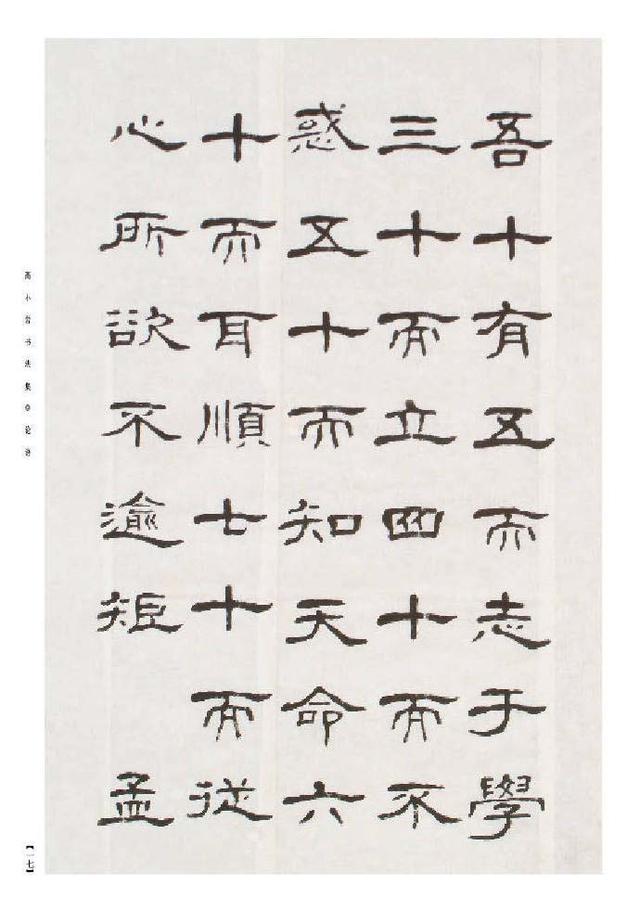 吾十有五而志于學
三十而立四十而不
惑五十而知天命六
十而耳順七十而從
心所欲不逾矩 孟
高小岩书法集◎论语
【一七】